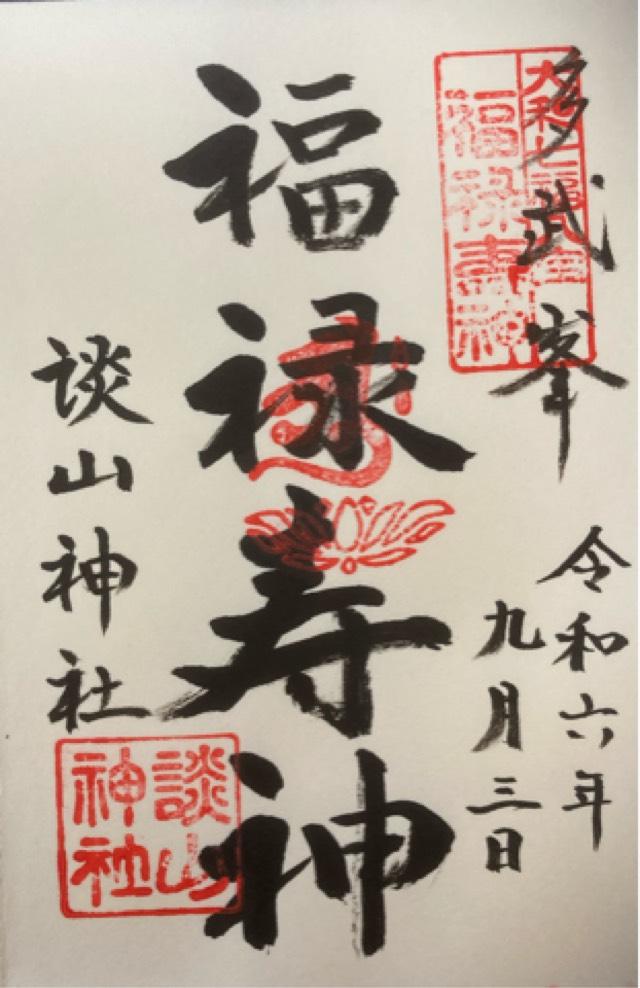 多武峯
大和七福神
福禄寿神
令和六年
九月三日
福禄寿神
談山神社
談山
神社